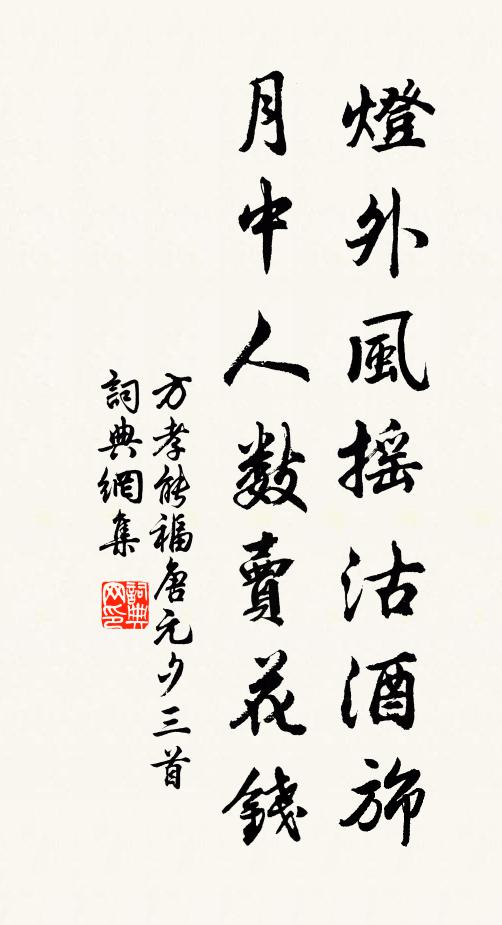 燈外風摇沽酒旆
月中人數賣花錢
方孝能福唐元夕三首
詞典網集
詞典
网印